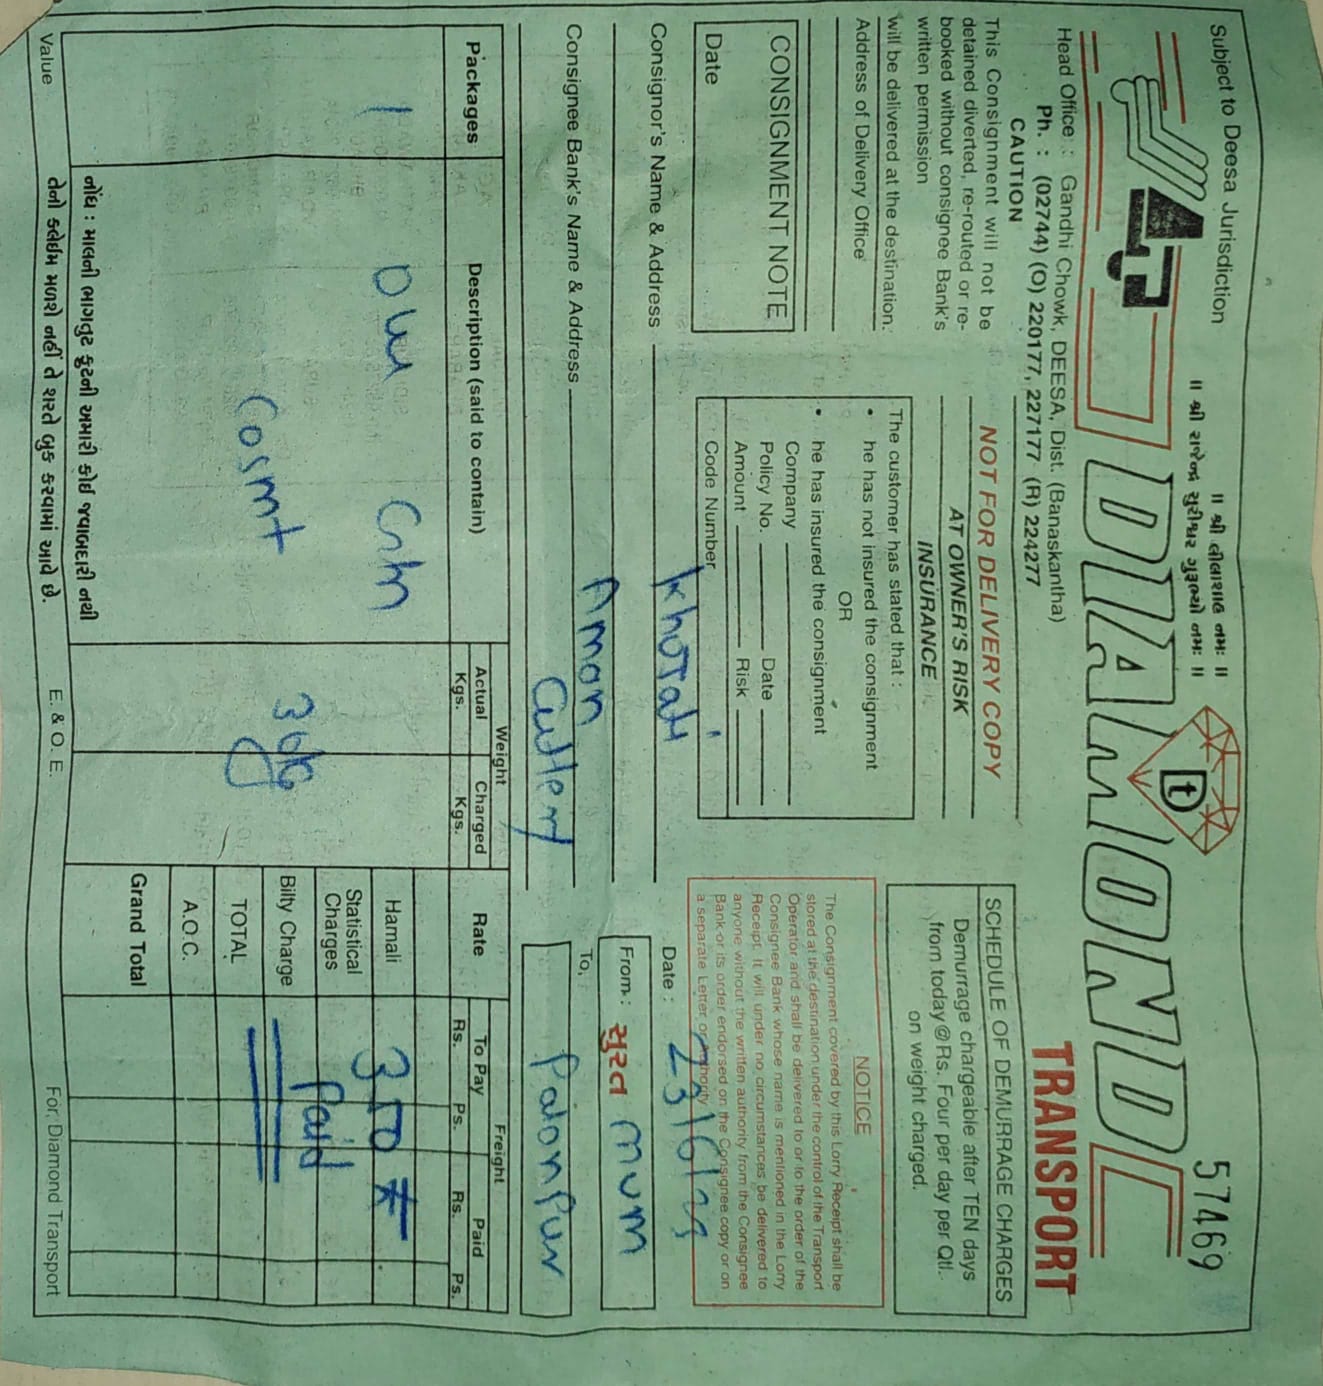 Subject to Deesa Jurisdiction
॥ શ્રી લીલાશાહ નમઃ ॥
॥ શ્રી રાજેન્દ્ર સુરીશ્વર ગુરૂભ્યો નમઃ ॥
57469
t
DIAMOND
TRANSPORT
Head Office : Gandhi Chowk, DEESA, Dist. (Banaskantha)
Ph. : (02744) (O) 220177, 227177 (R) 224277
CAUTION
This Consignment will not be
detained diverted, re-routed or re-
booked without consignee Bank's
written permission
will be delivered at the destination.
Address of Delivery Office
CONSIGNMENT NOTE
Date
NOT FOR DELIVERY COPY
AT OWNER'S RISK
INSURANCE
The customer has stated that :
• he has not insured the consignment
OR
• he has insured the consignment
Company
Policy No. Date
Amount Risk
Code Number
SCHEDULE OF DEMURRAGE CHARGES
Demurrage chargeable after TEN days
from today@Rs. Four per day per Qtl.
on weight charged.
NOTICE
The Consignment covered by this Lorry Receipt shall be
stored at the destination under the control of the Transport
Operator and shall be delivered to or to the order of the
Consignee Bank whose name is mentioned in the Lorry
Receipt. It will under no circumstances be delivered to
anyone without the written authority from the Consignee
Bank or its order endorsed on the Consignee copy or on
a separate Letter or Authority
Consignor's Name & Address Khorati
Date : 23/6/25
From : સુરત mum
Consignee Bank's Name & Address Aman
Cutlery
To, Palanpur
Packages Description (said to contain) Weight Rate Freight
Actual Kgs. Charged Kgs. To Pay Paid
Rs. Ps. Rs. Ps.
1
Cosmt
30kg
Hamali 350
Statistical Charges Paid
Bilty Charge
TOTAL
A.O.C.
Grand Total
નોંધ : માલની ભાગતુટ ફુટની અમારી કોઈ જવાબદારી નથી
તેનો કલેઈમ મળશે નહીં તે શરતે બુક કરવામાં આવે છે.
Value E. & O. E. For Diamond Transport